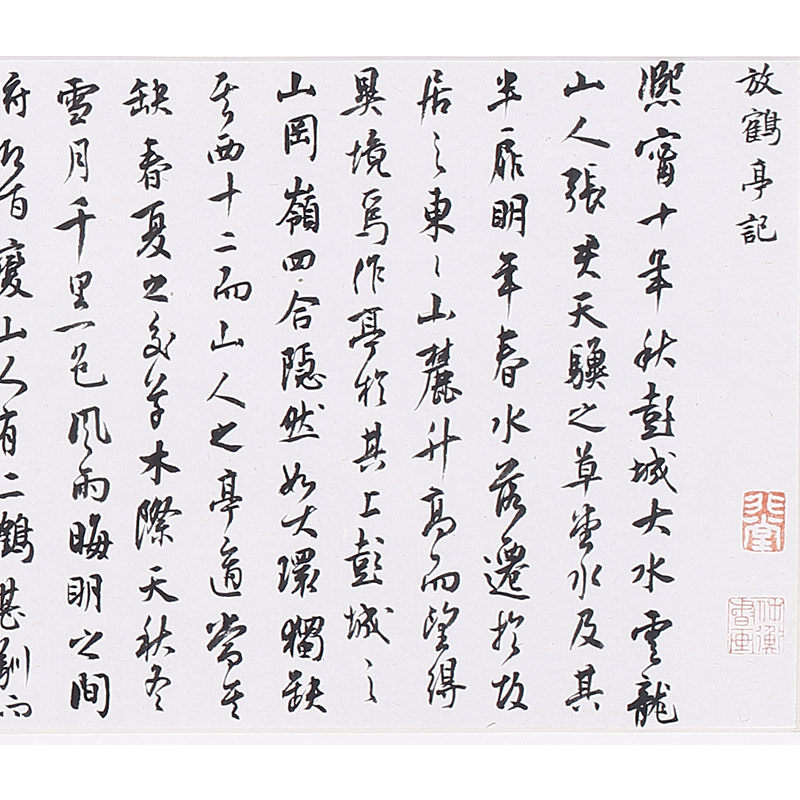 放鶴亭記
熙甯十年秋彭城大水雲龍
山人張君天驥之草堂水及其
半扉明年春水落遷於故
居之東〻山麓升高而望得
異境焉作亭於其上彭城之
山岡嶺四合隱然如大環獨缺
其西十二而山人之亭適當其
缺春夏之交草木際天秋冬
雪月千里一色風雨晦明之間
俯仰百變山人有二鶴甚馴而
仲衡書畫